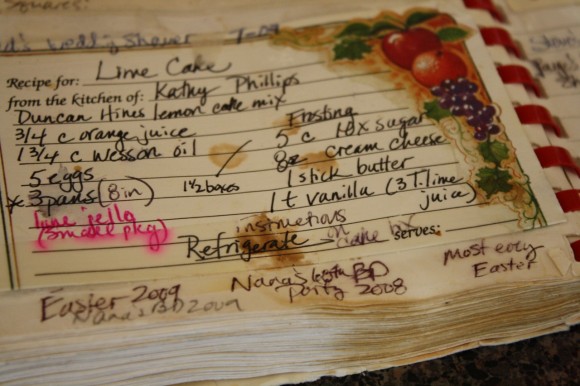 Wedding Shower 7-09
Recipe for: Lime Cake
from the kitchen of: Kathy Phillips
Duncan Hines lemon cake mix
3/4 c orange juice
1 3/4 c Wesson oil
5 eggs
* 3 pans (8 in)
1 1/2 boxes
lime jello
(small pkg)
Frosting
5 c 10x sugar
8oz cream cheese
1 stick butter
1 t vanilla (3 T. lime
juice)
instructions
on cake
Refrigerate
serves:
Easter 2009
Nana's BD 2009
Nana's BD
party 2008
Most every
Easter